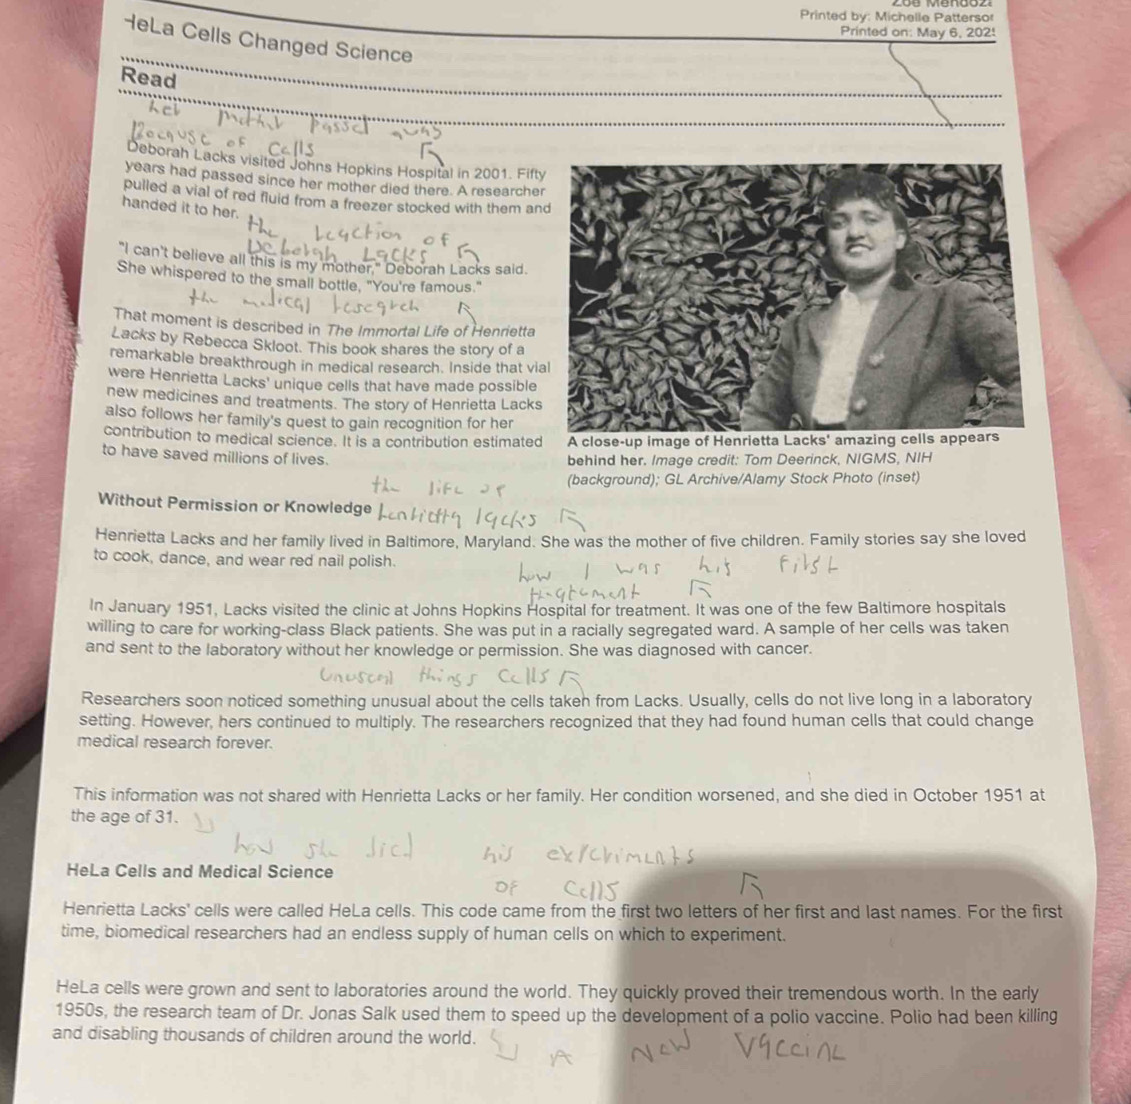 Printed by: Michelle Patterson
Printed on: May 6, 202
HeLa Cells Changed Science
Read
her mother passed away
Because of cells
Deborah Lacks visited Johns Hopkins Hospital in 2001. Fifty
years had passed since her mother died there. A researcher
pulled a vial of red fluid from a freezer stocked with them and
handed it to her.
the reaction of
Deborah Lacks
"I can't believe all this is my mother," Deborah Lacks said.
She whispered to the small bottle, "You're famous."
the medical research
That moment is described in The Immortal Life of Henrietta
Lacks by Rebecca Skloot. This book shares the story of a
remarkable breakthrough in medical research. Inside that vial
were Henrietta Lacks' unique cells that have made possible
new medicines and treatments. The story of Henrietta Lacks
also follows her family's quest to gain recognition for her
contribution to medical science. It is a contribution estimated
to have saved millions of lives.
A close-up image of Henrietta Lacks' amazing cells appears
behind her. Image credit: Tom Deerinck, NIGMS, NIH
(background); GL Archive/Alamy Stock Photo (inset)
the life of
Without Permission or Knowledge
lacks
Henrietta Lacks and her family lived in Baltimore, Maryland. She was the mother of five children. Family stories say she loved
to cook, dance, and wear red nail polish.
how I was his first
In January 1951, Lacks visited the clinic at Johns Hopkins Hospital for treatment. It was one of the few Baltimore hospitals
willing to care for working-class Black patients. She was put in a racially segregated ward. A sample of her cells was taken
and sent to the laboratory without her knowledge or permission. She was diagnosed with cancer.
things cells
Researchers soon noticed something unusual about the cells taken from Lacks. Usually, cells do not live long in a laboratory
setting. However, hers continued to multiply. The researchers recognized that they had found human cells that could change
medical research forever.
This information was not shared with Henrietta Lacks or her family. Her condition worsened, and she died in October 1951 at
the age of 31.
how she died
his experiments
of cells
HeLa Cells and Medical Science
Henrietta Lacks' cells were called HeLa cells. This code came from the first two letters of her first and last names. For the first
time, biomedical researchers had an endless supply of human cells on which to experiment.
HeLa cells were grown and sent to laboratories around the world. They quickly proved their tremendous worth. In the early
1950s, the research team of Dr. Jonas Salk used them to speed up the development of a polio vaccine. Polio had been killing
and disabling thousands of children around the world.
A New Vaccine